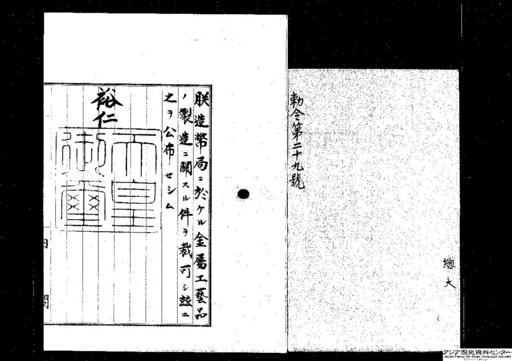 勅令第二十九號
總大
朕造幣局ニ於ケル金屬工藝品
ノ製造ニ關スル件ヲ裁可シ玆ニ
之ヲ公布セシム
裕仁
天皇
御璽
内閣
アジア歴史資料センター